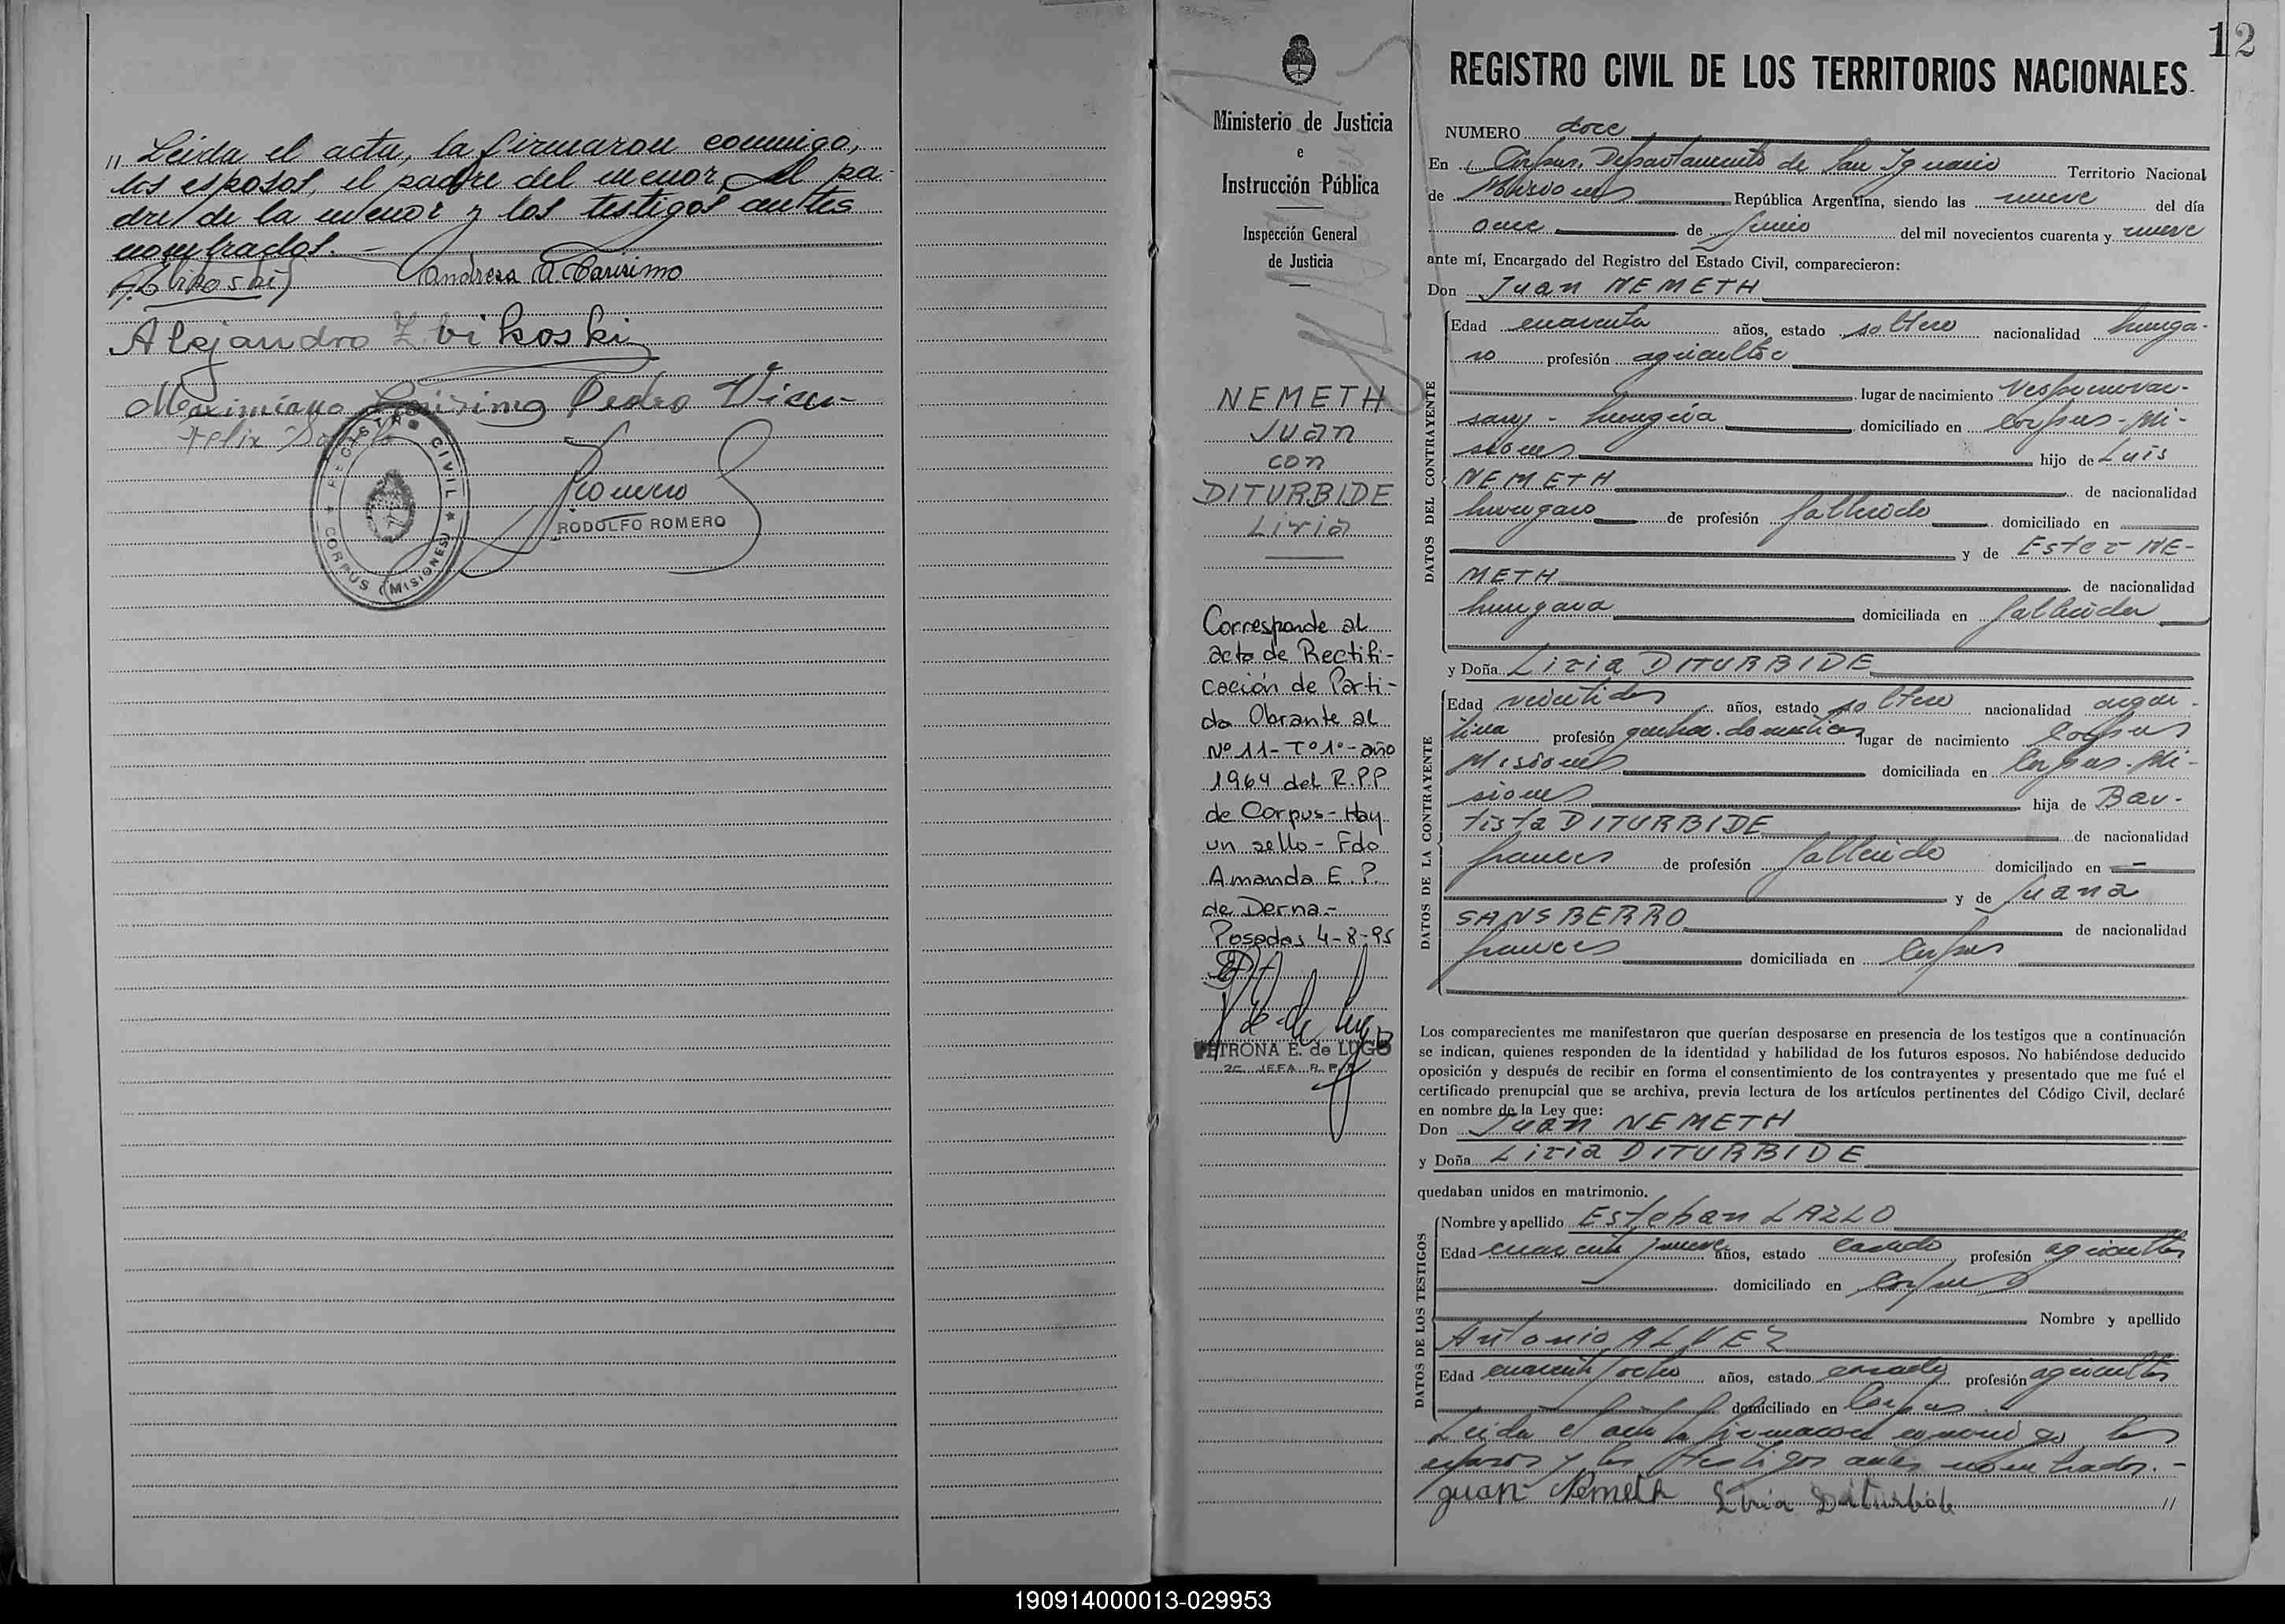 " Leida el acta, la firmaron conmigo,
los esposos, el padre del menor, el pa-
dre de la menor y los testigos antes
nombrados.-
Andresa A. Carisimo
Alejandro Zbikoski
Maximiano Carisimo Pedro
Felix
REGISTRO CIVIL
CORPUS (MISIONES)
Romero
RODOLFO ROMERO
Ministerio de Justicia
e
Instrucción Pública
Inspección General
de Justicia
NEMETH
Juan
con
DITURBIDE
Liria
Corresponde al
acta de Rectifi-
cación de Parti-
da Obrante al
Nº 11- Tº 1º- año
1964 del R.P.P
de Corpus- Hay
un sello- Fdo
Amanda E. P.
de Derna.-
Posadas 4-8-95
PETRONA E. de LUGO
2º JEFA R. P. P.
12
REGISTRO CIVIL DE LOS TERRITORIOS NACIONALES.
NUMERO doce
En Corpus, Departamento de San Ignacio Territorio Nacional
de Misiones República Argentina, siendo las nueve del día
once de Junio del mil novecientos cuarenta y nueve
ante mí, Encargado del Registro del Estado Civil, comparecieron:
Don Juan NEMETH
DATOS DEL CONTRAYENTE
Edad cuarenta años, estado soltero nacionalidad hunga-
ro profesión agricultor
lugar de nacimiento
hungria domiciliado en Corpus-Mi-
siones hijo de Luis
NEMETH de nacionalidad
hungaro de profesión fallecido domiciliado en
y de Ester NE-
METH de nacionalidad
hungara domiciliada en fallecida
y Doña Liria DITURBIDE
DATOS DE LA CONTRAYENTE
Edad veintidos años, estado soltera nacionalidad argen-
tina profesión quehac. domesticos lugar de nacimiento Corpus
Misiones domiciliada en Corpus-Mi-
siones hija de Bau-
tista DITURBIDE de nacionalidad
frances de profesión fallecido domiciliado en -
y de Juana
SANSBERRO de nacionalidad
frances domiciliada en Corpus
Los comparecientes me manifestaron que querían desposarse en presencia de los testigos que a continuación
se indican, quienes responden de la identidad y habilidad de los futuros esposos. No habiéndose deducido
oposición y después de recibir en forma el consentimiento de los contrayentes y presentado que me fué el
certificado prenupcial que se archiva, previa lectura de los artículos pertinentes del Código Civil, declaré
en nombre de la Ley que:
Don Juan NEMETH
y Doña Liria DITURBIDE
quedaban unidos en matrimonio.
DATOS DE LOS TESTIGOS
Nombre y apellido Esteban LAZLO
Edad cuarenta y nueve años, estado casado profesión agricultor
domiciliado en Corpus
Nombre y apellido
Antonio ALVEZ
Edad cuarenta y ocho años, estado casado profesión agricultor
domiciliado en Corpus.
Leida el acta la firmaron conmigo los
esposos y los testigos antes nombrados.-
Juan Nemeth Liria Diturbide "
190914000013-029953